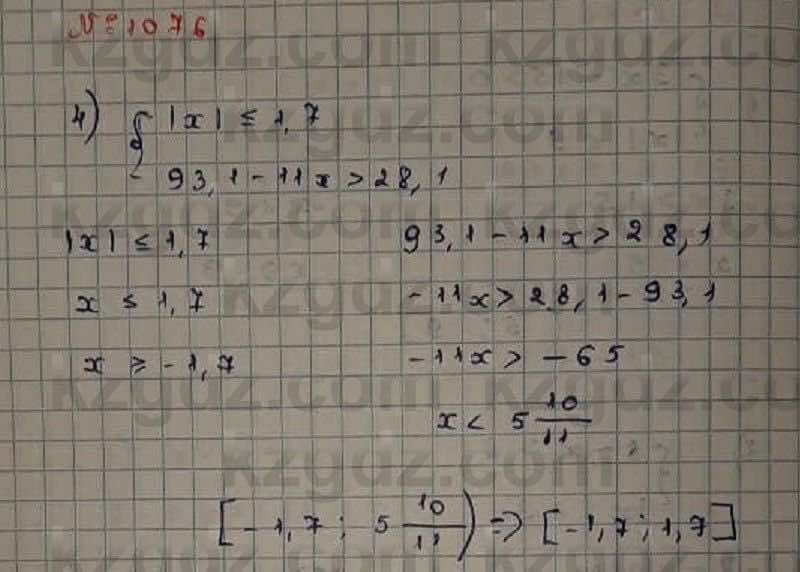 № 1076
4) { |x| ≤ 1,7
93,1 - 11x > 28,1
|x| ≤ 1,7 93,1 - 11x > 28,1
x ≤ 1,7 -11x > 28,1 - 93,1
x ≥ -1,7 -11x > -65
x < 5 10/11
[-1,7; 5 10/11) => [-1,7; 1,7]
kzgdz.com